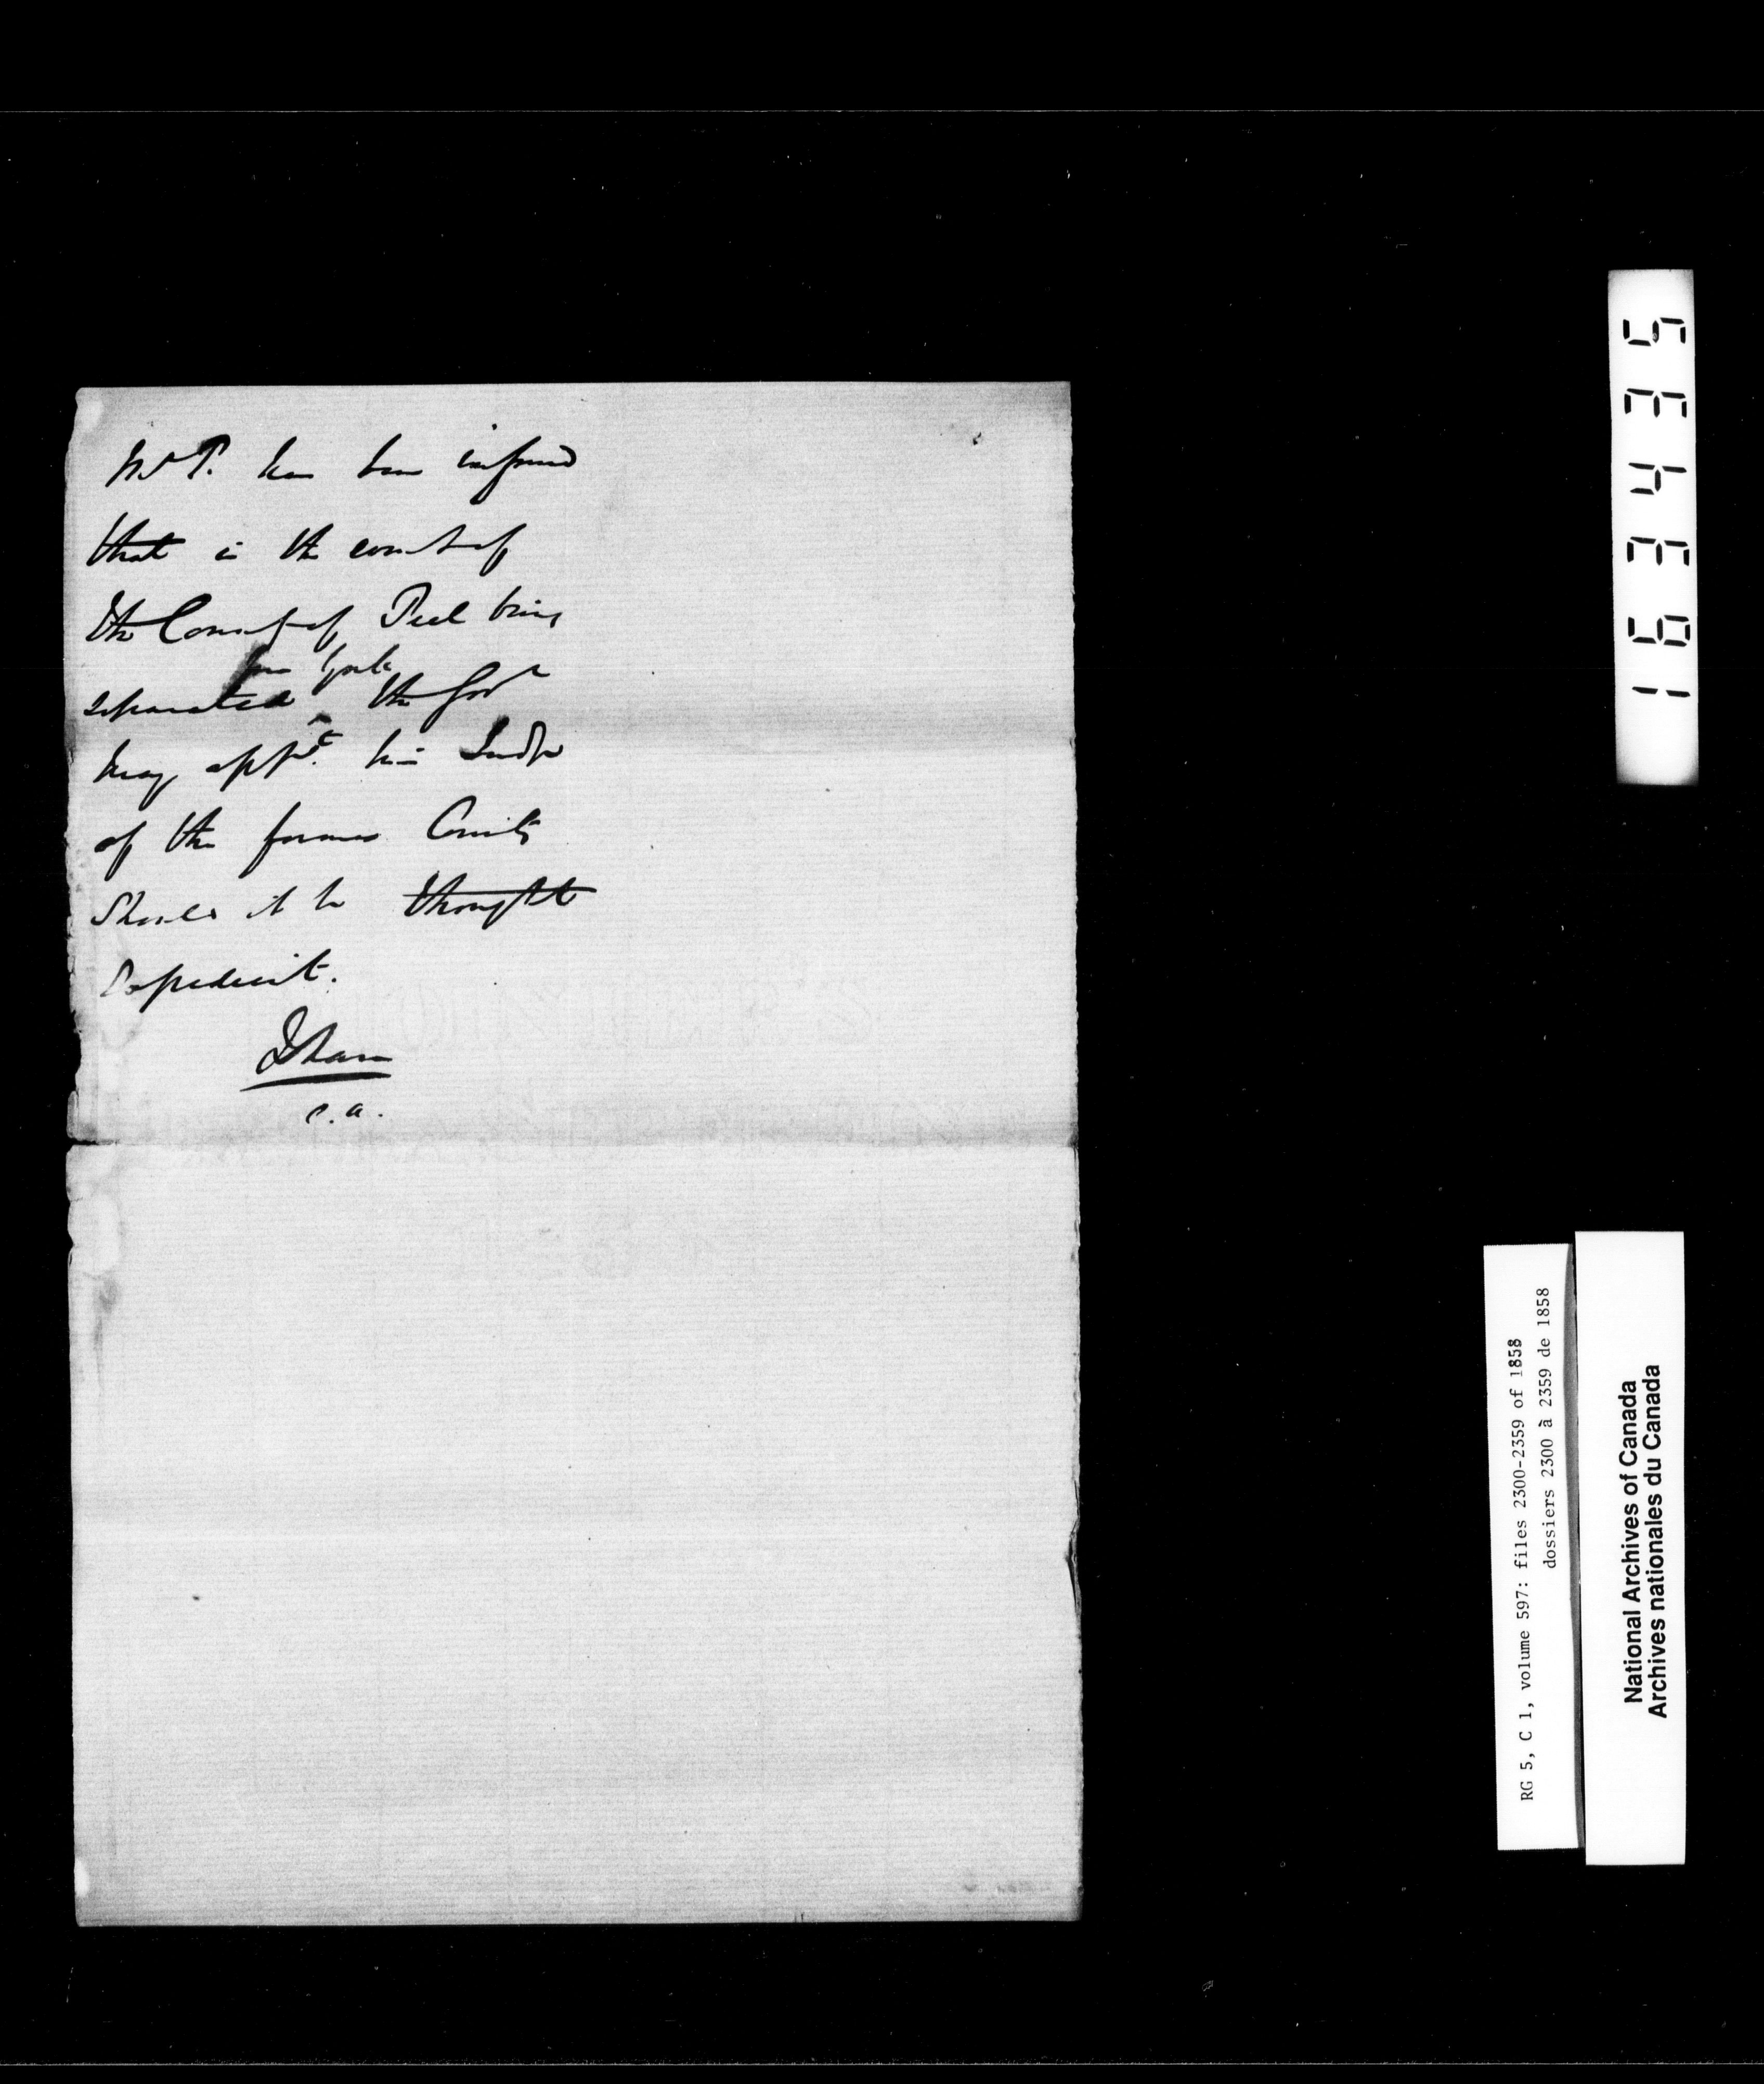 Mr P. has been informed
that in the event of
the County of Peel being
from York
separated ^ the Govr
may appt. him Judge
of the former County
Should it be thought
Expedient.
E.A.
163435
RG 5, C 1, volume 597: files 2300-2359 of 1858
dossiers 2300 à 2359 de 1858
National Archives of Canada
Archives nationales du Canada